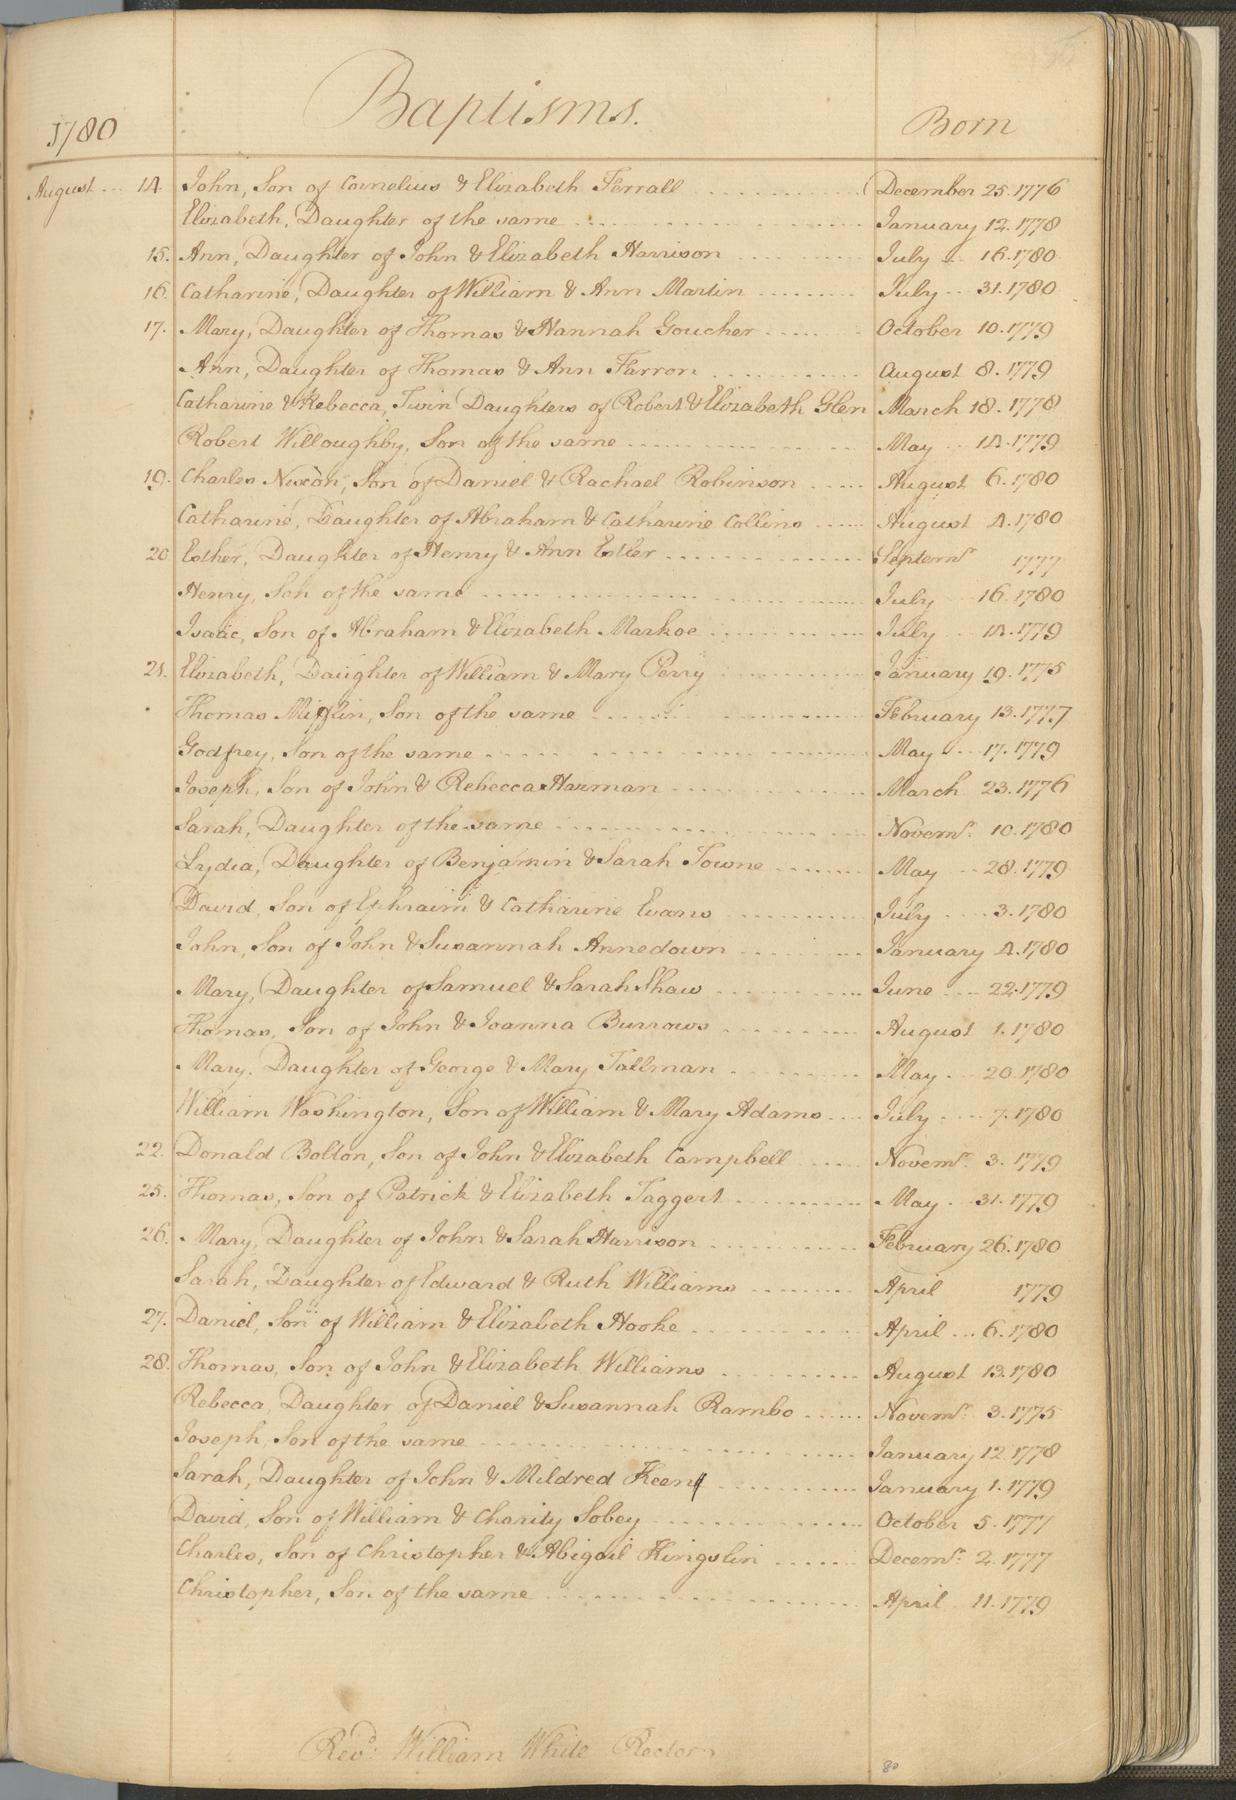 1780 Baptisms. Born
August ... 14. John, Son of Cornelius & Elizabeth Ferrall ............ December 25. 1776
Elizabeth, Daughter of the same ............ January 12. 1778
15. Ann, Daughter of John & Elizabeth Harrison ............ July ... 16. 1780
16. Catharine, Daughter of William & Ann Martin ......... July ... 31. 1780
17. Mary, Daughter of Thomas & Hannah Goucher ...... October 10. 1779
Ann, Daughter of Thomas & Ann Farron ............ August 8. 1779
Catharine & Rebecca, Twin Daughters of Robert & Elizabeth Glen March 18. 1778
Robert Willoughby, Son of the same ............ May ... 14. 1779
19. Charles Nixon, Son of Daniel & Rachael Robinson ...... August 6. 1780
Catharine, Daughter of Abraham & Catharine Collins ...... August 4. 1780
20 Esther, Daughter of Henry & Ann Estler ............ Septemr 1777
Henry, Son of the same ............ July ... 16. 1780
Isaac, Son of Abraham & Elizabeth Markoe ............ July ... 14. 1779
21. Elizabeth, Daughter of William & Mary Perry ............ January 19. 1775
Thomas Mifflin, Son of the same ............ February 13. 1777
Godfrey, Son of the same ............ May ... 17. 1779
Joseph, Son of John & Rebecca Harman ............ March 23. 1776
Sarah, Daughter of the same ............ Novemr: 10. 1780
Lydia, Daughter of Benjamin & Sarah Towne ........ May ... 28. 1779
David, Son of Ephraim & Catharine Evans ............ July .... 3. 1780
John, Son of John & Susannah Annedown ............ January 4. 1780
Mary, Daughter of Samuel & Sarah Shaw ............ June .... 22. 1779
Thomas, Son of John & Joanna Burrows ............ August 1. 1780
Mary, Daughter of George & Mary Tallman ............ May ... 20. 1780
William Washington, Son of William & Mary Adams .... July ..... 7. 1780
22. Donald Bolton, Son of John & Elizabeth Campbell ...... Novemr: 3. 1779
25. Thomas, Son of Patrick & Elizabeth Taggert ............ May ... 31. 1779
26. Mary, Daughter of John & Sarah Harrison ............ February 26. 1780
Sarah, Daughter of Edward & Ruth Williams ......... April 1779
27. Daniel, Son of William & Elizabeth Hooke ............ April ... 6. 1780
28. Thomas, Son of John & Elizabeth Williams ............ August 13. 1780
Rebecca, Daughter of Daniel & Susannah Rambo ...... Novemr: 3. 1775
Joseph, Son of the same ............ January 12. 1778
Sarah, Daughter of John & Mildred Keen ............ January 1. 1779
David, Son of William & Charity Sobey ............ October 5. 1777
Charles, Son of Christopher & Abigail Kingslin ...... Decemr: 2. 1777
Christopher, Son of the same ............ April .. 11. 1779
Revd: William White Rector
80